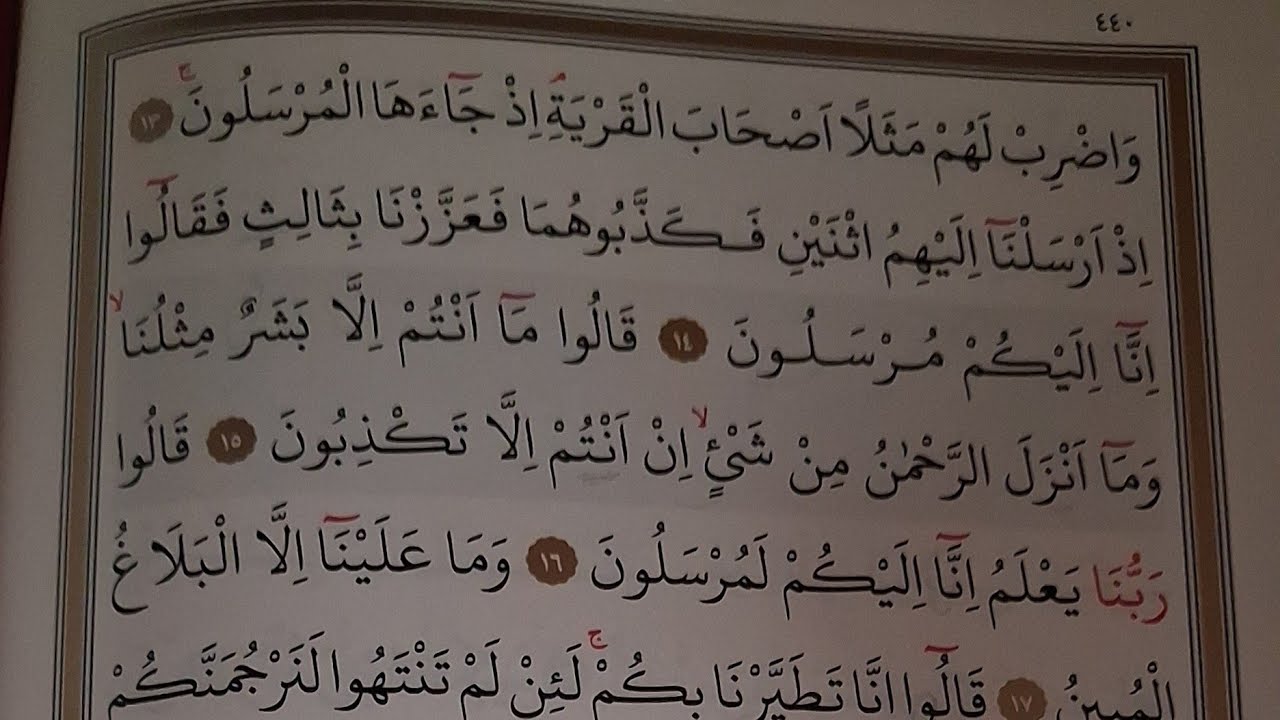 ٤٤٠
وَاضْرِبْ لَهُمْ مَثَلًا اَصْحَابَ الْقَرْيَةِۢ اِذْ جَٓاءَهَا الْمُرْسَلُونَۚ ١٣
اِذْ اَرْسَلْنَٓا اِلَيْهِمُ اثْنَيْنِ فَكَذَّبُوهُمَا فَعَزَّزْنَا بِثَالِثٍ فَقَالُٓوا
اِنَّٓا اِلَيْكُمْ مُرْسَلُونَ ١٤ قَالُوا مَٓا اَنْتُمْ اِلَّا بَشَرٌ مِثْلُنَاۙ
وَمَٓا اَنْزَلَ الرَّحْمٰنُ مِنْ شَيْءٍۙ اِنْ اَنْتُمْ اِلَّا تَكْذِبُونَ ١٥ قَالُوا
رَبُّنَا يَعْلَمُ اِنَّٓا اِلَيْكُمْ لَمُرْسَلُونَ ١٦ وَمَا عَلَيْنَٓا اِلَّا الْبَلَاغُ
الْمُبينُ ١٧ قَالُٓوا اِنَّا تَطَيَّرْنَا بِكُمْۚ لَئِنْ لَمْ تَنْتَهُوا لَنَرْجُمَنَّكُمْ